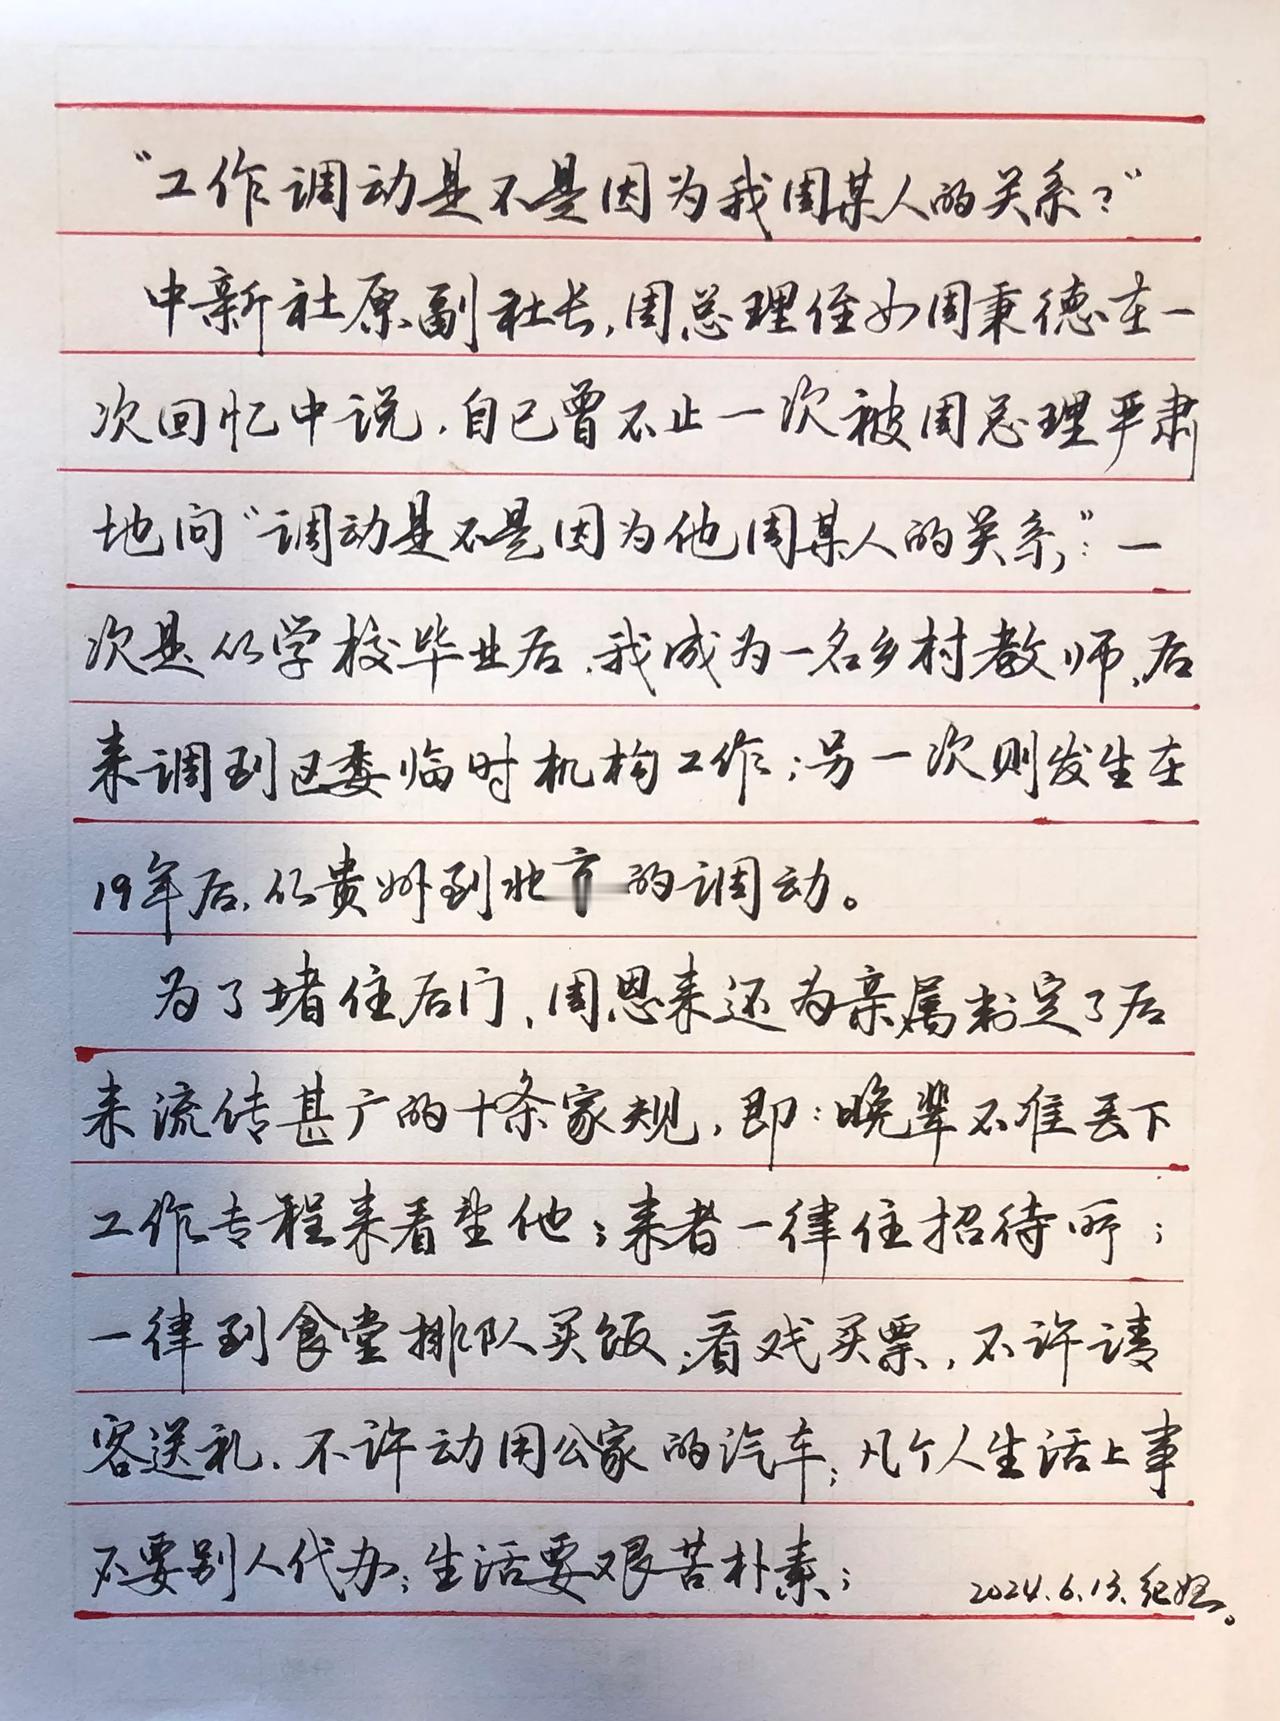 “工作调动是不是因为我周某人的关系？”
中新社原副社长，周总理侄女周秉德在一
次回忆中说，自己曾不止一次被周总理严肃
地问“调动是不是因为他周某人的关系，”：一
次是从学校毕业后，我成为一名乡村教师，后
来调到区委临时机构工作；另一次则发生在
19年后，从贵州到北京的调动。
为了堵住后门，周恩来还为亲属制定了后
来流传甚广的十条家规，即：晚辈不准丢下
工作专程来看望他；来者一律住招待所；
一律到食堂排队买饭；看戏买票，不许请
客送礼，不许动用公家的汽车；凡个人生活上事
不要别人代办；生活要艰苦朴素；
2024.6.13.